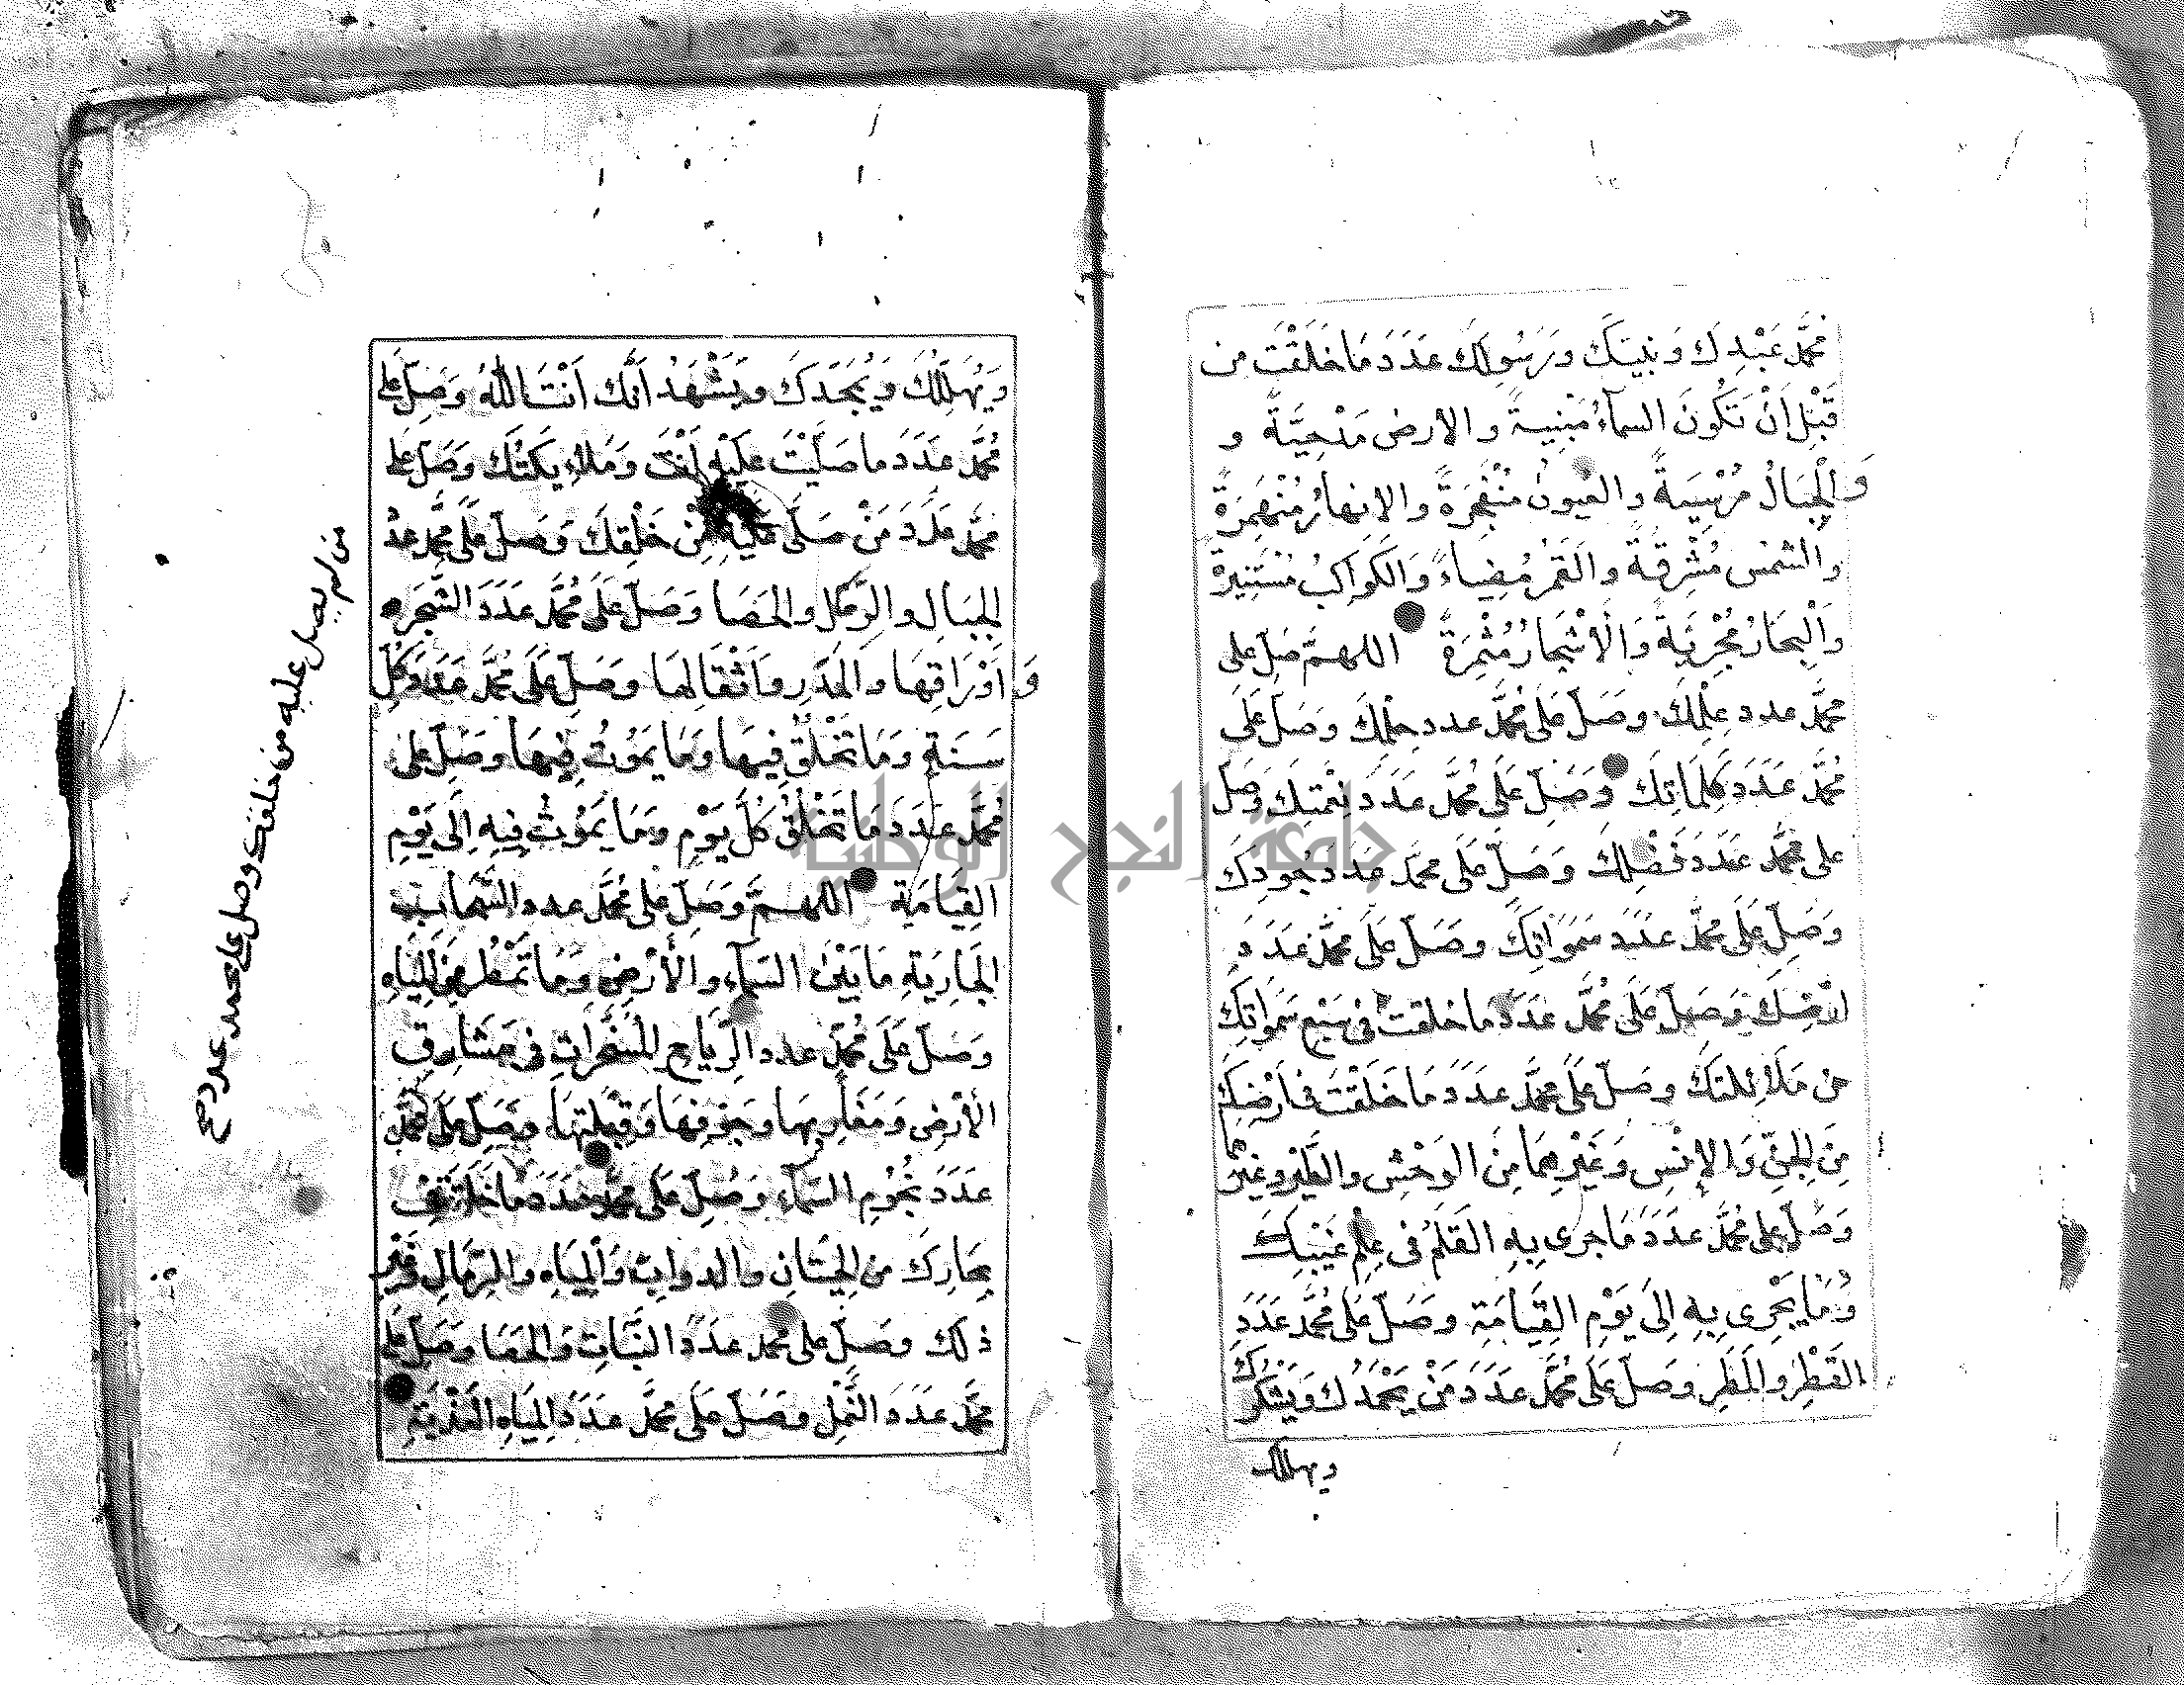 محمَّد عَبْدِكَ وَنَبِيِّكَ وَرَسُولِكَ عَدَدَ مَا خَلَقْتَ من
قَبْلِ أَنْ تَكُونَ السمآءُ مَبْنِيةً والارض مَدْحِيَّةً و
وَالْجِبَالُ مُرْسِيَةً والعيون مُنْفَجِرَةً والانهارُ مُنْهَمِرَةً
والشمس مُشْرِقَةً والقَمَرُ مُضِياءً وَالكَوَاكِبُ مُسْتَنِيرةً
وَالْبِحَارُ مُجْرِيَةً وَالْأَشْجَارُ مُثْمِرَةً اللهمَّ صَلِّ على
محمَّد عدد عِلْمِكَ وصَلِّ على مُحمَّد عدد حِلْمِكَ وصَلِّ عَلَى
مُحمَّد عَدَدَ كَلِمَاتِكَ وَصَلِّ عَلَى مُحمَّد عَدَدَ نِعْمَتِكَ وَصَلِّ
على محمَّد عَدَدَ فَضْلِكَ وَصَلِّ عَلَى محمَّد عَدَدَ جُودِكَ
وَصَلِّ عَلَى محمَّد عَدَدَ سَمَوَاتِكَ وصَلِّ عَلَى محمَّد عَدَدَ
ارْضِكَ وَصَلِّ عَلَى مُحمَّد عَدَدَ ما خلقت فى سَبْعِ سَمَوَاتِكَ
من مَلَائِكَتِكَ وصَلِّ عَلَى محمَّد عدَدَ مَا خَلَقْتَ فى أَرْضِكَ
مِنَ الجِنِّ وَالإِنْسِ وَغَيْرِهِمَا مِنَ الوَحْشِ والطَّيْرِ وغَيْرِهِمَا
وَصَلِّ على مُحمَّد عَدَدَ مَا جرى بِهِ القَلَمُ فى عِلْمِ غَيْبِكَ
وَمَا يَجْرِى بِهِ إِلَى يَوْمِ القِيَامَةِ وصَلِّ عَلَى مُحمَّد عَدَدَ
القَطْرِ والمَطَرِ وصَلِّ عَلَى مُحمَّد عَدَدَ مَنْ يَحْمَدُكَ وَيَشْكُرُكَ
ويهللك
وَيُهَلِّلُكَ وَيُمَجِّدَكَ وَيَشْهَدُ أَنَّكَ أَنْتَ اللَّهُ وَصَلِّ على
مُحمَّد عَدَدَ ما صَلَيْتَ عَلَيْهِ أَنْتَ وَمَلاءِيكَتُكَ وَصَلِّ على
محمَّد عَدَدَ مَنْ صَلَّى عَلَيْهِ مِنْ خَلْقِكَ وَصَلِّ عَلَى محمَّد عَدَدَ
الجِبَالِ والرَّمْلِ والحَصَا وَصَلِّ عَلَى مُحمَّد عَدَدَ الشَّجَرِ
وَأَوْرَاقِهَا والمَدَرِ وَأَثْقَالِهَا وصَلِّ عَلَى مُحمَّد عَدَدَ كُلِّ
سَنَةٍ وَمَا تَخْلُقُ فِيهَا وَمَا يَمُوتُ فِيهَا وصَلِّ على
مُحمَّد عَدَدَ مَا تَخْلُقُ كُلَّ يَوْمٍ وَمَا يَمُوتُ فِيهِ إِلَى يَوْمِ
القِيَامَةِ اللهمَّ وَصَلِّ على مُحمَّد عدد السَّحَابِ
الجَارِيَةِ مَا بَيْنَ السَّمَآءِ وَالْأَرْضِ وَمَا تَمْطُر مِنَ المِيَاهِ
وَصَلِّ عَلَى مُحمَّد عدد الرِّيَاحِ المُسَخَّرَاتِ فى مَشَارِقِ
الأَرْضِ وَمَغَارِبِهَا وجَوْفِهَا وَقِبْلَتِهَا وَصَلِّ عَلَى مُحَمَّد
عَدَدَ نُجُومِ السَّمَآءِ وَصَلِّ عَلَى مُحَمَّد عَدَدَ مَا خَلَقْتَ فى
بِحَارِكَ من الحِيتَانِ والدوابِّ وَالْمِيَاهِ والرِّمَالِ وَغَيْرِ
ذلك وصَلِّ على محمد عَدَدَ النَّبَاتِ وَالحَصَا وَصَلِّ على
مُحمَّد عَدَدَ النَّمْلِ وصَلِّ عَلَى محمَّد عَدَدَ المِيَاهِ العَذْبَةِ
من لم يصل عليه من خلقك وصل على محمد عدد صح
جامعة النجاح الوطنية